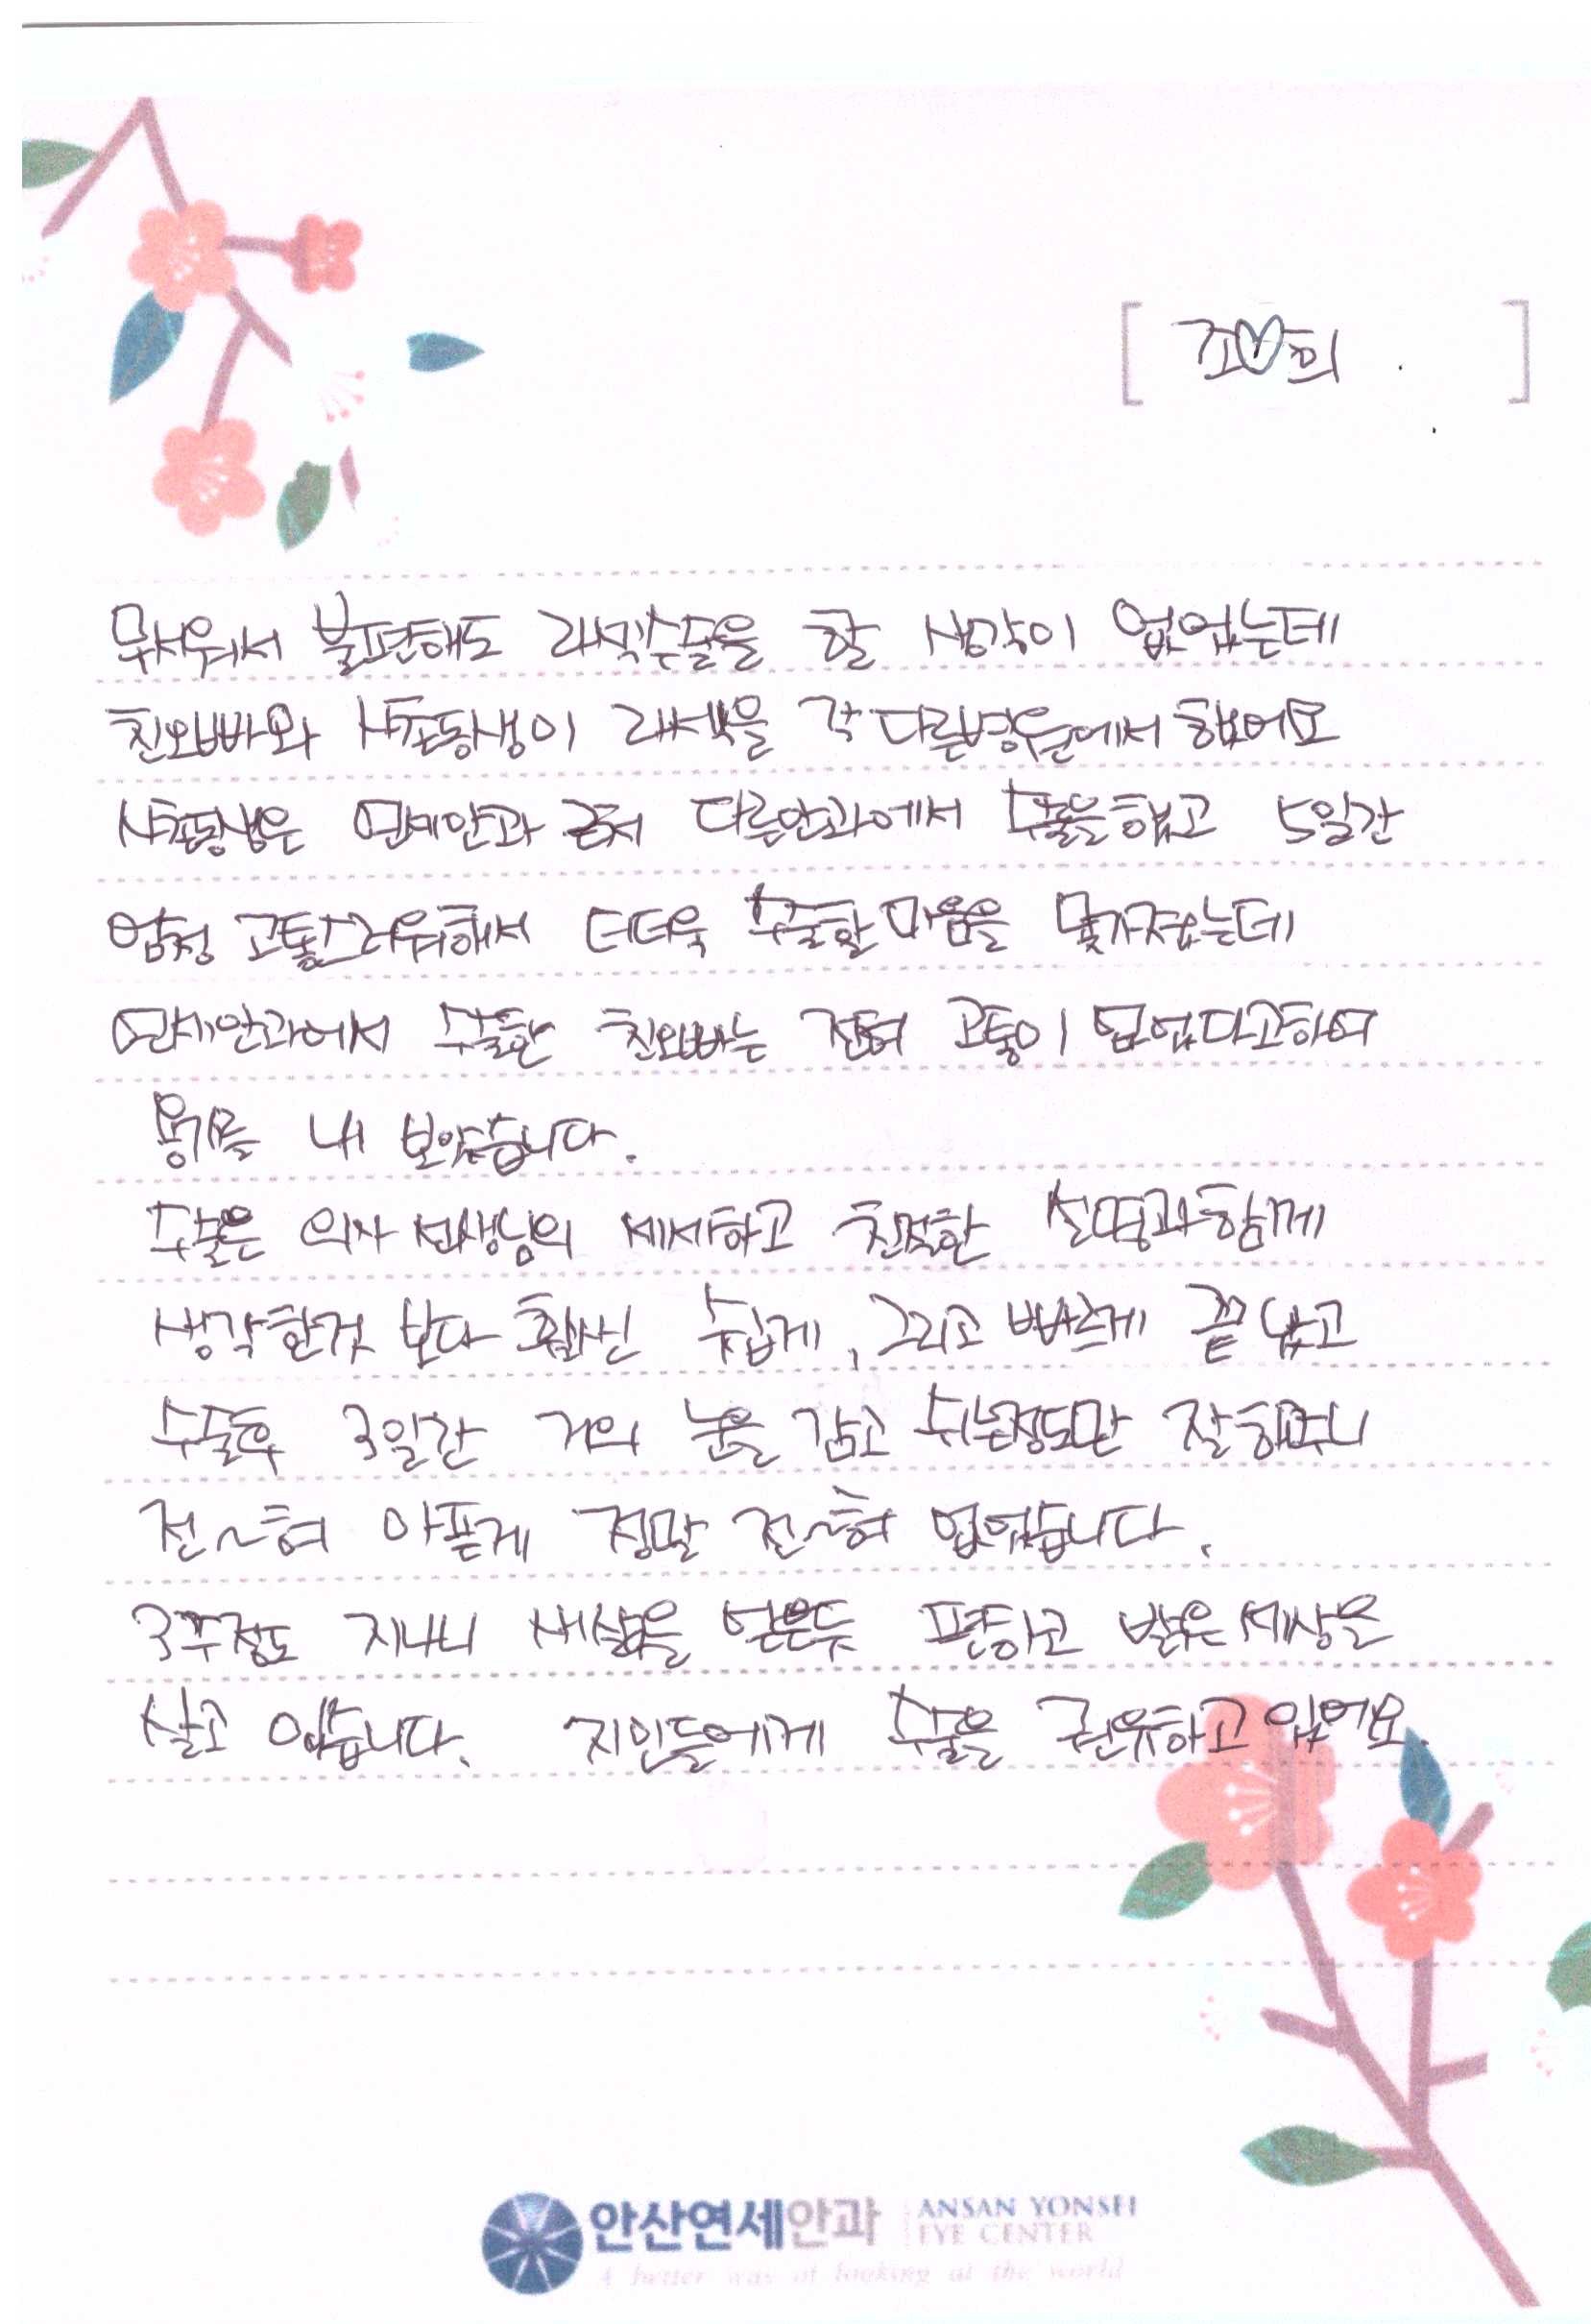 [ 조♡희 ]
무서워서 불편해도 라식수술을 할 생각이 없었는데
친오빠와 사촌동생이 라섹을 각 다른병원에서 했어요
사촌동생은 연세안과 근처 다른안과에서 수술을했고 5일간
엄청 고통스러워해서 더더욱 수술할 마음을 못가졌는데
연세안과에서 수술한 친오빠는 전혀 고통이 없었다고하여
용기를 내 보았습니다.
수술은 의사선생님의 세세하고 친절한 설명과함께
생각한것 보다 훨씬 쉽게, 그리고 빠르게 끝났고
수술후 3일간 거의 눈을 감고 쉬는정도만 잘해주니
전~혀 아픈게 정말 전~혀 없었습니다.
3주정도 지나니 새삶을 얻은듯 편하고 밝은세상을
살고 있습니다. 지인들에게 수술을 권유하고있어요.
안산연세안과 ANSAN YONSEI
EYE CENTER
A better way of looking at the world